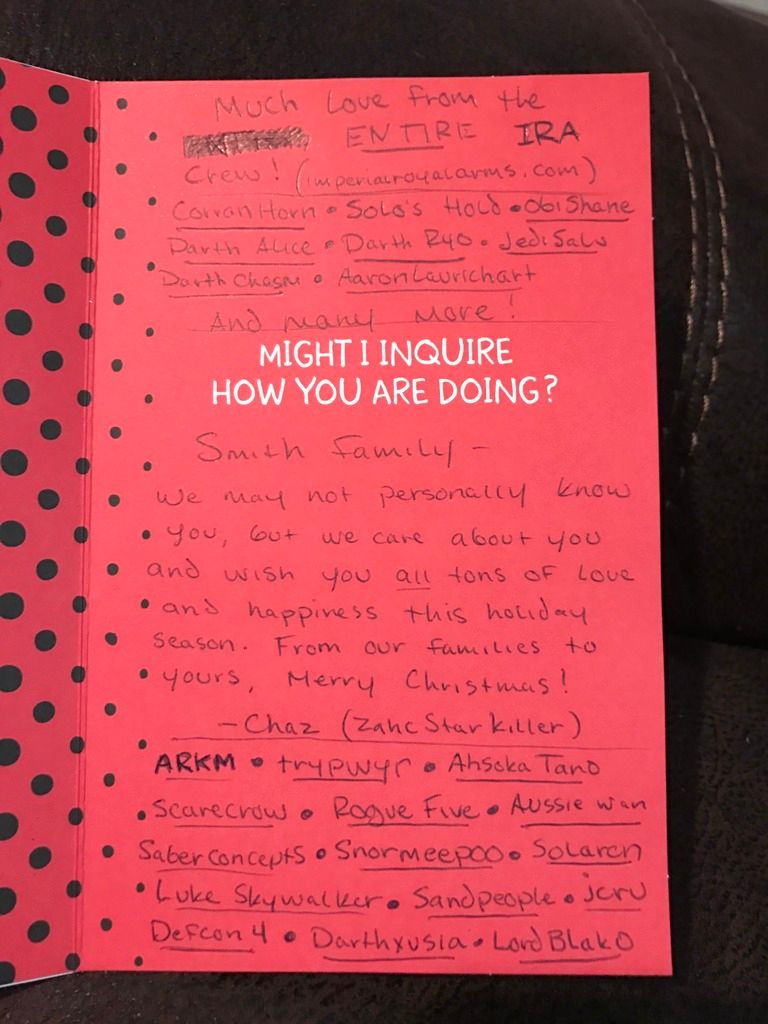 Much Love from the
ENTIRE IRA
Crew! (imperialroyalarms.com)
Corran Horn • Solo's Hold • ObiShane
Darth Alice • Darth Ryo • JediSalv
Darth Chasm • AaronLaurichart
And many more!
MIGHT I INQUIRE
HOW YOU ARE DOING?
Smith Family -
We may not personally know
you, but we care about you
and wish you all tons of love
and happiness this holiday
season. From our families to
yours, Merry Christmas!
- Chaz (Zahc Starkiller)
ARKM • trypwyr • Ahsoka Tano
Scarecrow • Rogue Five • Aussie wan
Saberconcepts • Snormeepoo • Solaren
Luke Skywalker • Sandpeople • jcru
Defcon 4 • Darthxusia • Lord Blako